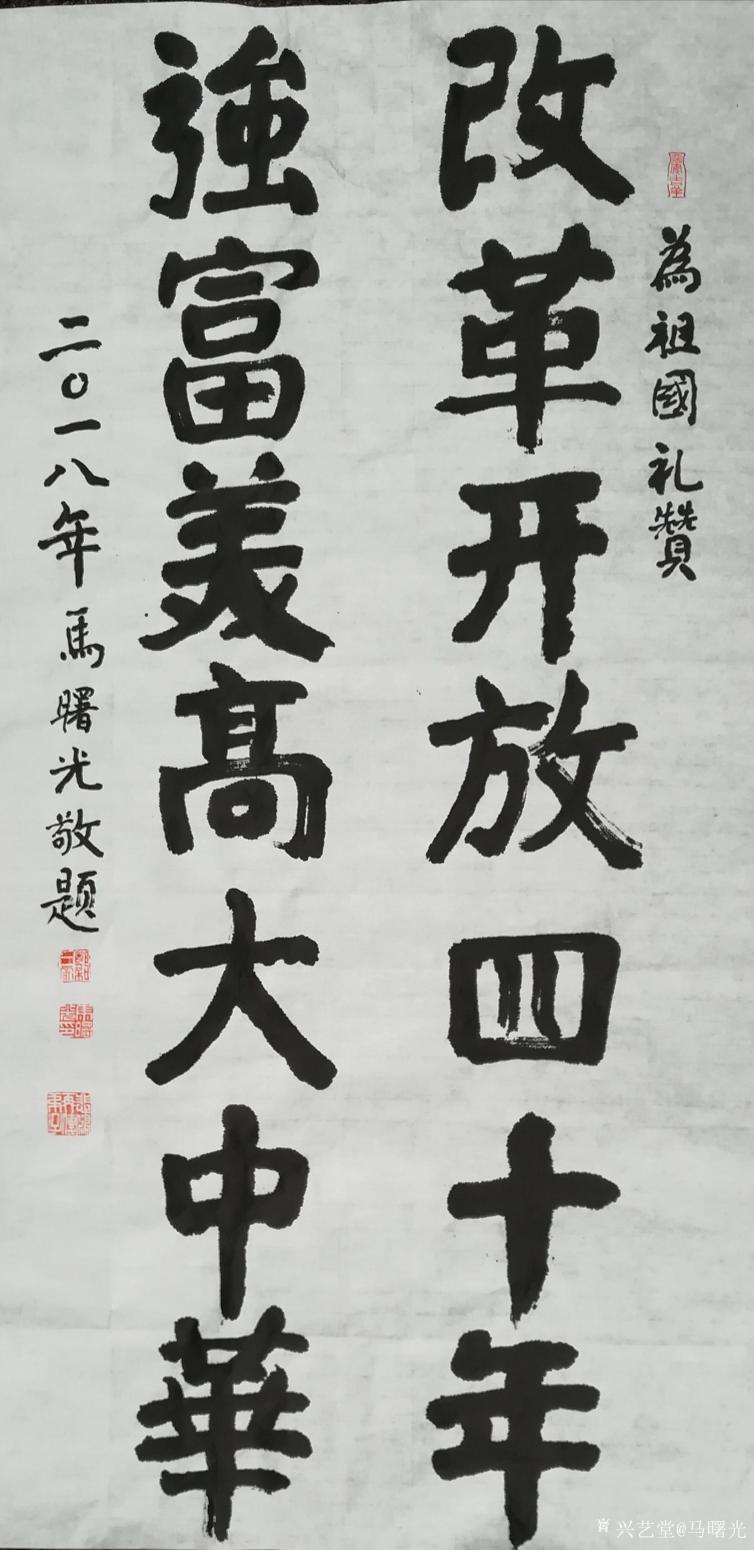 為祖國礼贊
改革开放四十年
強富美髙大中華
二〇一八年馬曙光敬題
兴艺堂@马曙光